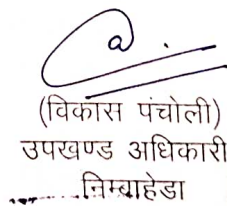 (विकास पंचोली)
उपखण्ड अधिकारी
निम्बाहेडा